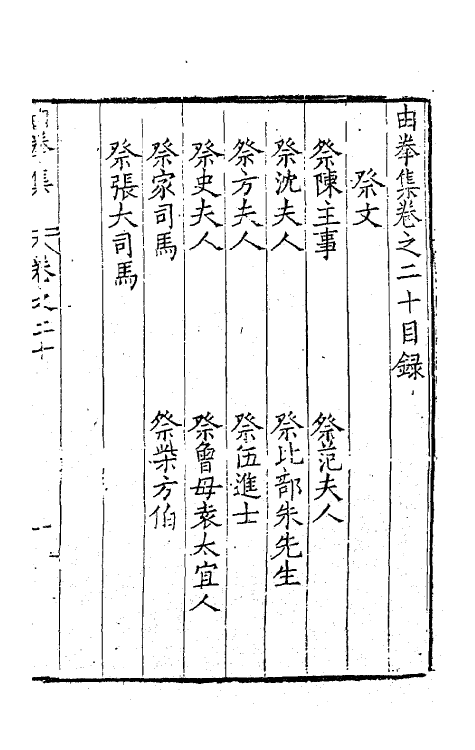 由拳集卷之二十目録
祭文
祭陳主事　祭范夫人
祭沈夫人　祭比部朱先生
祭方夫人　祭伍進士
祭史夫人　祭曾母袁太宜人
祭家司馬　祭柴方伯
祭張大司馬
由拳集　卷之二十　一